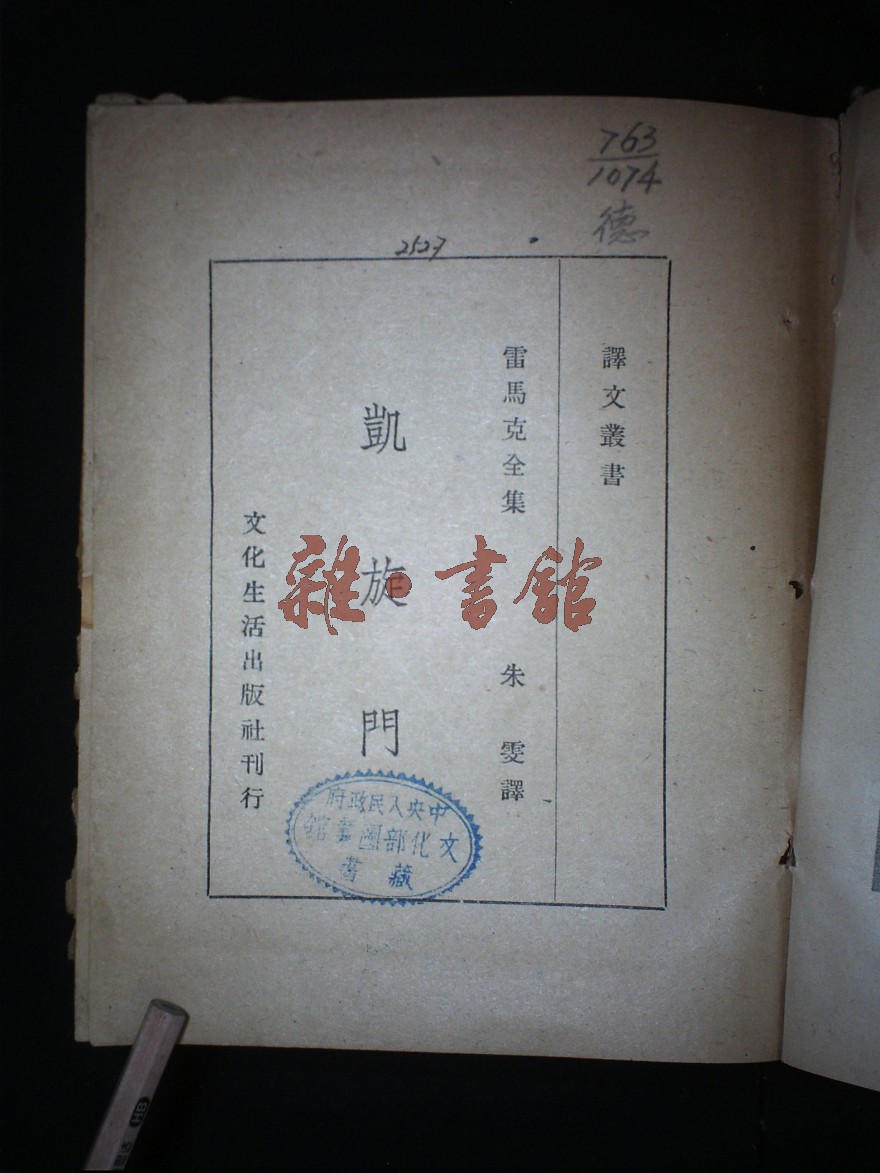 763
1074
德
2527
譯文叢書
雷馬克全集 朱雯譯
凱旋門
文化生活出版社刊行
雜·書館
中央人民政府
文化部圖書館
藏書
HB